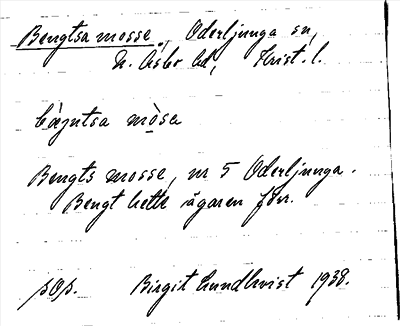 Bengtsa mosse, Oderljunga sn,
N. Åsbo hd, Krist. l.
bæjntsa mosa
Bengts mosse, nr 5 Oderljunga.
Bengt hette ägaren förr.
pOp. Birgit Lundkvist 1938.